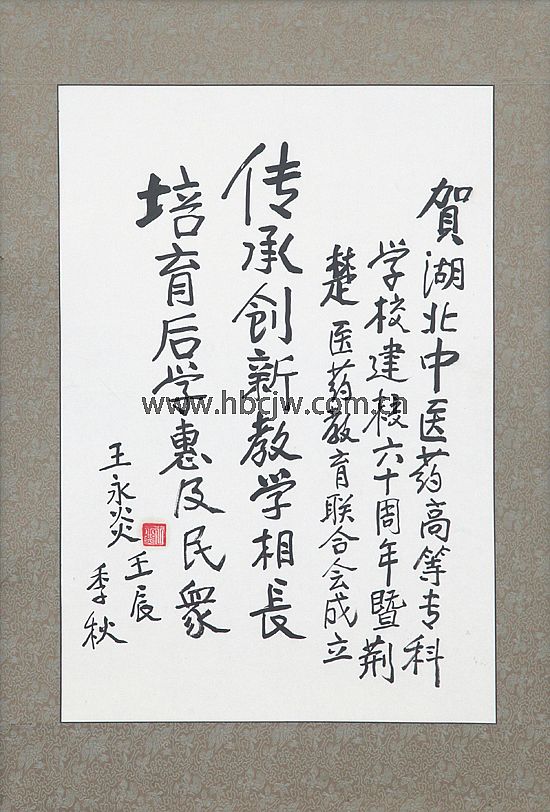 賀湖北中医药高等专科
学校建校六十周年暨荆
楚医药教育联合会成立
传承创新教学相長
培育后学惠及民衆
王永炎 壬辰
季秋
www.hbcjw.com.cn